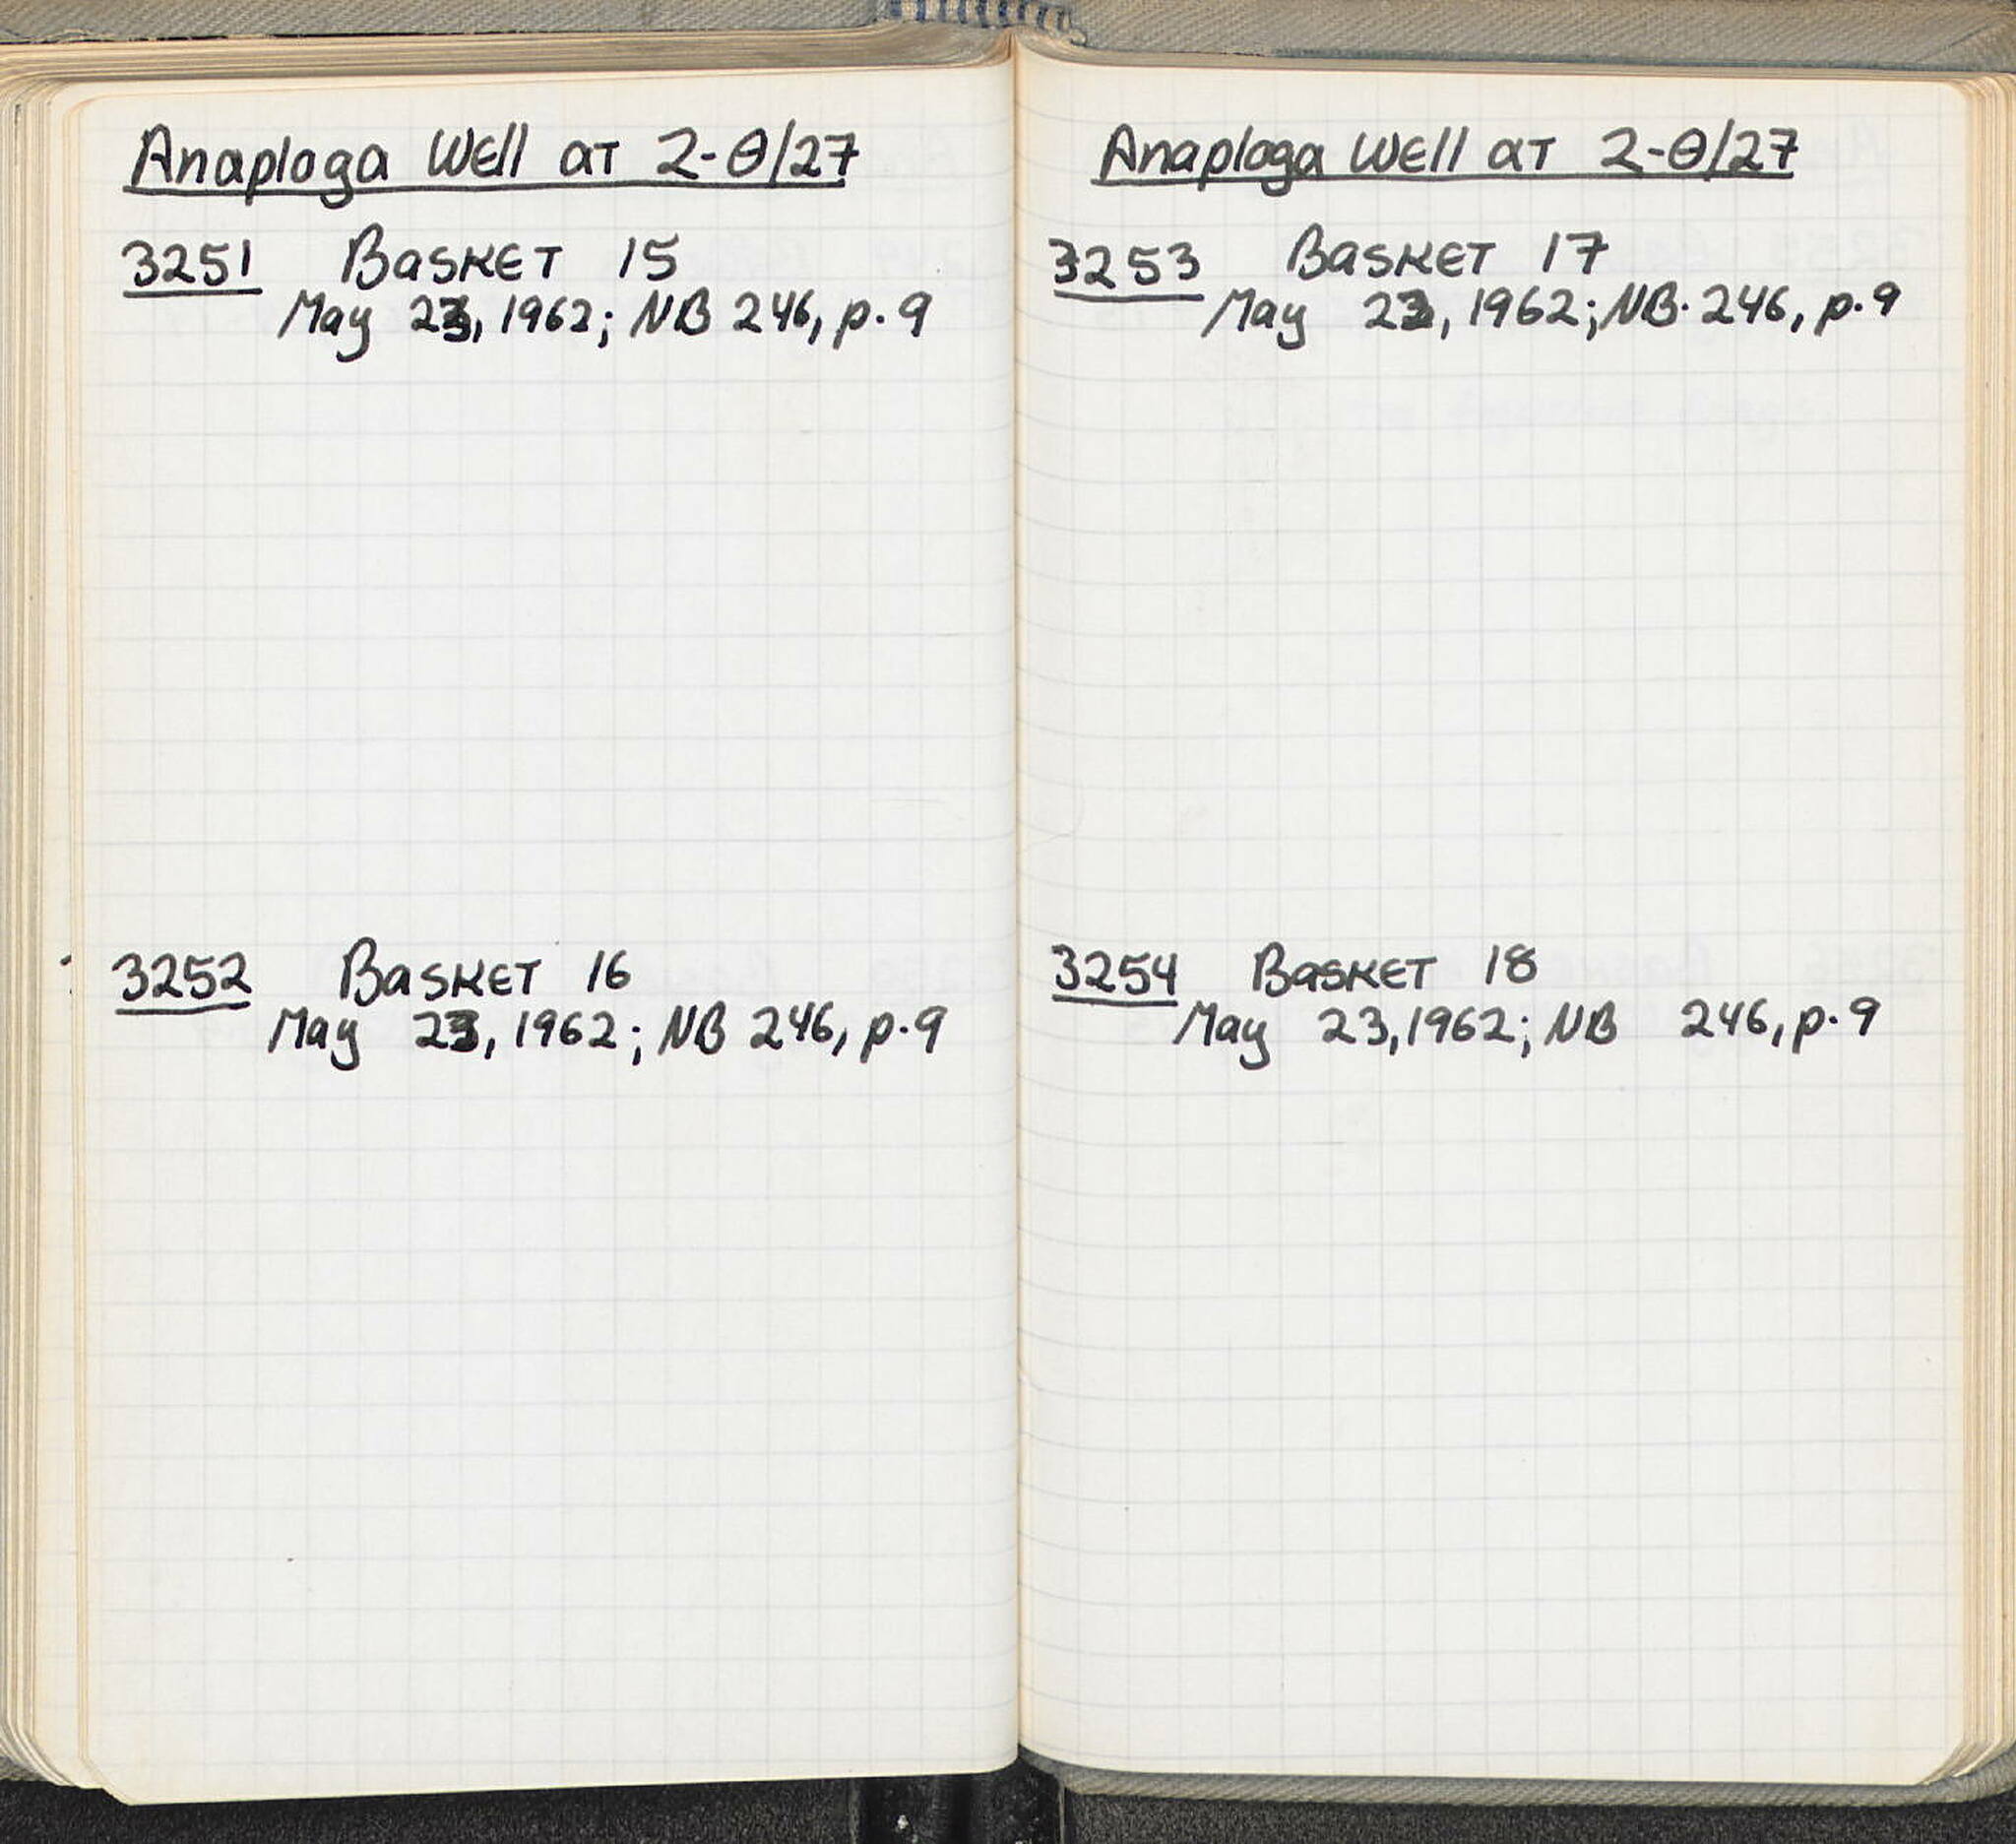 Anaploga Well at 2-θ/27
3251 Basket 15
May 23, 1962; NB 246, p. 9
3252 Basket 16
May 23, 1962; NB 246, p. 9
Anaploga Well at 2-θ/27
3253 Basket 17
May 23, 1962; NB. 246, p. 9
3254 Basket 18
May 23, 1962; NB 246, p. 9